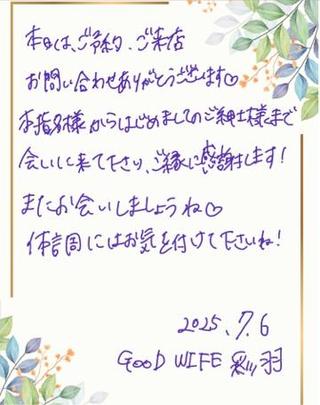 本日は、ご予約、ご来店
お問い合わせありがとうございます♡
本指名様からはじめましてのご紳士様まで
会いに来て下さり、ご縁に感謝します!
またお会いしましょうね♡
体調にはお気を付けて下さいね!
2025.7.6
GOOD WIFE 彩羽